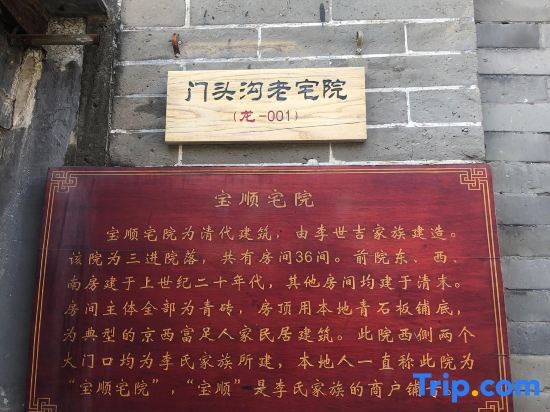 门头沟老宅院
(龙-001)
宝顺宅院
宝顺宅院为清代建筑，由李世吉家族建造。
该院为三进院落，共有房间36间。前院东、西、
南房建于上世纪二十年代，其他房间均建于清末。
房间主体全部为青砖，房顶用本地青石板铺底，
为典型的京西富足人家民居建筑。此院西侧两个
大门口均为李氏家族所建，本地人一直称此院为
“宝顺宅院” “宝顺”是李氏家族的商户铺
Trip.com